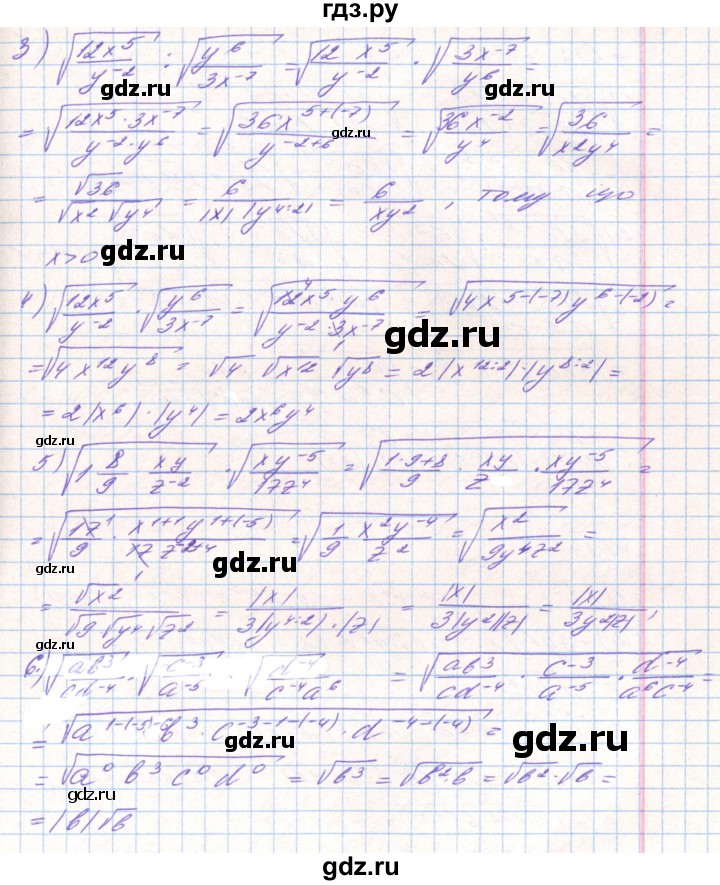 гдз.ру
3) √(12x⁵/y⁻²) : √(y⁶/3x⁻⁷) = √(12 x⁵/y⁻²) · √(3x⁻⁷/y⁶) =
= √(12x⁵·3x⁻⁷/y⁻²·y⁶) = √(36x⁵⁺⁽⁻⁷⁾/y⁻²⁺⁶) = √(36x⁻²/y⁴) = √(36/x²y⁴) =
gdz.ru
= √36/√x² √y⁴ = 6/|x| |y⁴:²| = 6/xy², тому що
x>0
gdz.ru
4) √(12x⁵/y⁻²) · √(y⁶/3x⁻⁷) = √(12x⁵ y⁶/y⁻² 3x⁻⁷) = √(4x⁵⁻⁽⁻⁷⁾y⁶⁻⁽⁻²⁾) =
gdz.ru
= √(4x¹²y⁸) = √4 · √x¹² · √y⁸ = 2|x¹²:²|·|y⁸:²| =
= 2|x⁶|·|y⁴| = 2x⁶y⁴
gdz.ru
5) √(1 8/9 xy/z⁻²) · √(xy⁻⁵/17z⁴) = √(1·9+8/9 · xy/z · xy⁻⁵/17z⁴) =
gdz.ru
= √(17/9 · x¹⁺¹y¹⁺⁽⁻⁵⁾/17 z⁻²⁺⁴) = √(1/9 x²y⁻⁴/z²) = √(x²/9y⁴z²) =
gdz.ru
= √x²/√9 √y⁴ √z² = |x|/3|y⁴:²|·|z| = |x|/3|y²||z| = |x|/3y²|z|,
gdz.ru
6) √(ab³/cd⁻⁴) · √(c⁻³/a⁻⁵) · √(d⁻⁴/c⁻⁴a⁶) = √(ab³/cd⁻⁴ · c⁻³/a⁻⁵ · d⁻⁴/a⁶c⁻⁴) =
= √(a¹⁻⁽⁻⁵⁾⁻⁶b³·c⁻³⁻¹⁻⁽⁻⁴⁾·d⁻⁴⁻⁽⁻⁴⁾) =
gdz.ru
gdz.ru
= √(a⁰ b³ c⁰ d⁰) = √b³ = √(b²·b) = √b²·√b =
gdz.ru
= |b|√b
gdz.ru
gdz.ru